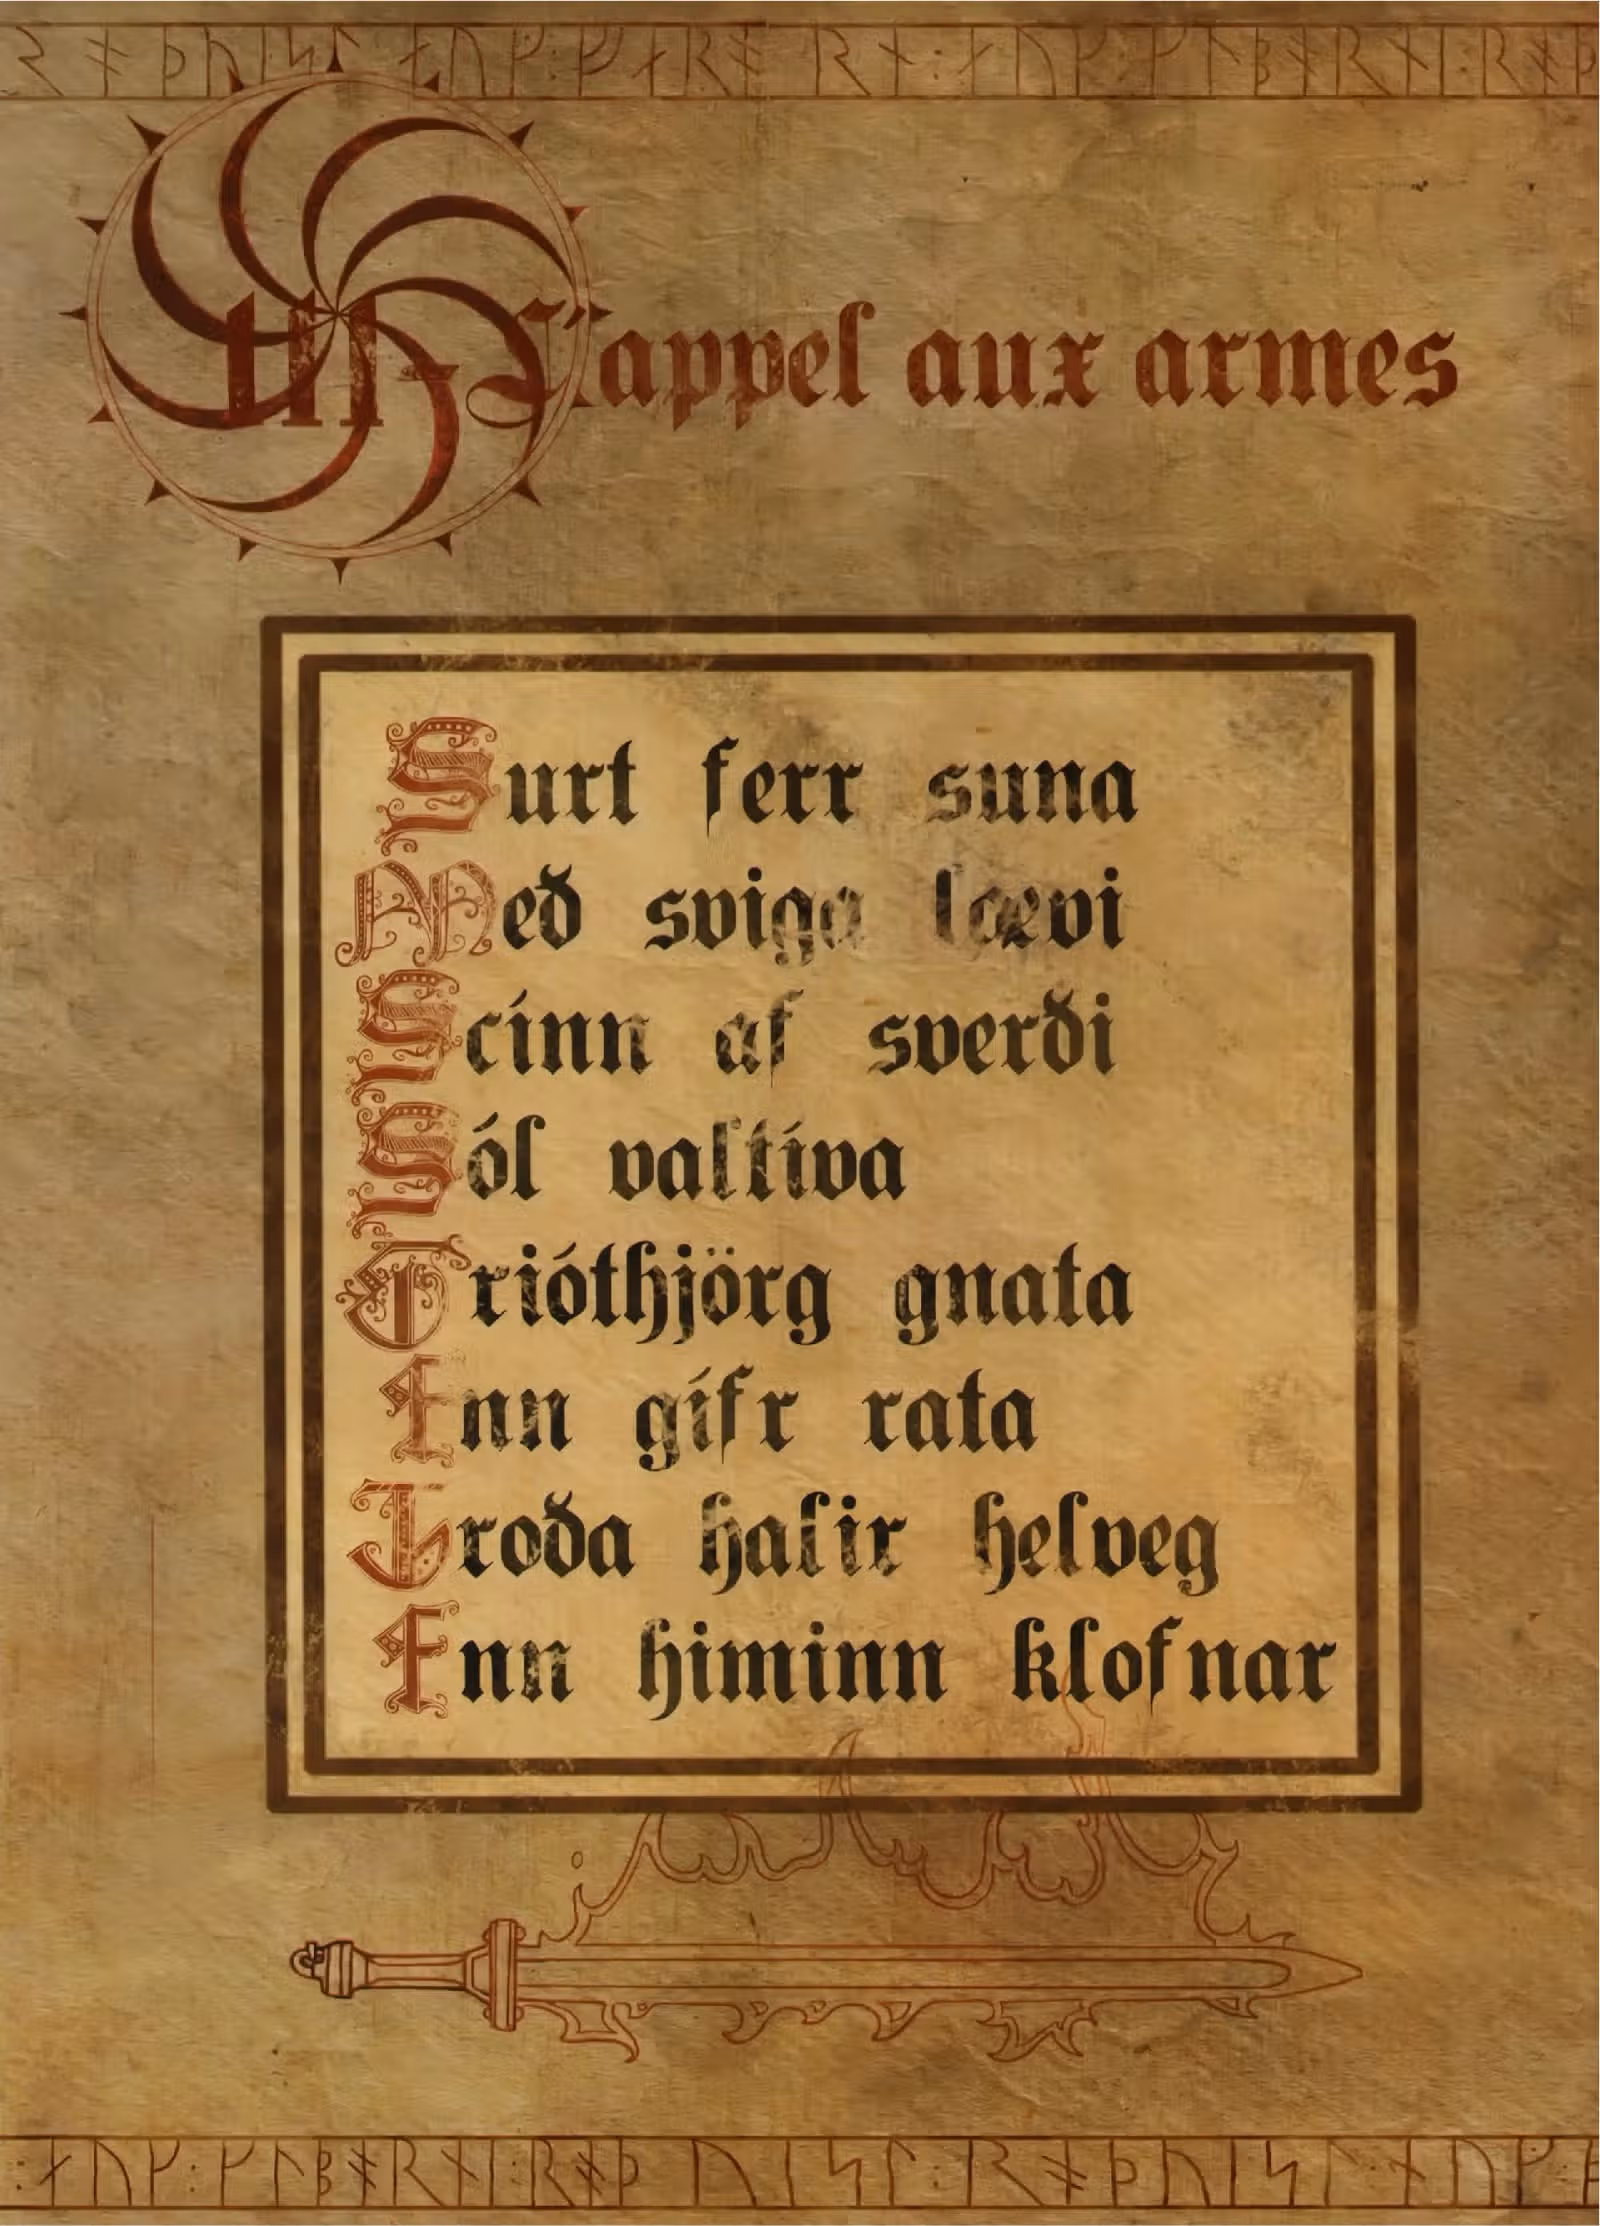 III- L'appel aux armes
Surt ferr suna
Með sviga lævi
Scínn af sverði
Sól valtíva
Grióthjörg gnata
Enn gífr rata
Troða halir helveg
Enn himinn klofnar